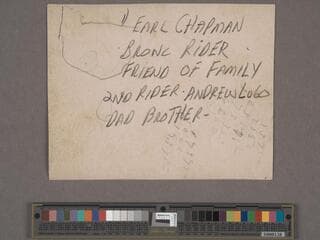 EARL CHAPMAN
BRONC RIDER.
FRIEND OF FAMILY
2ND RIDER - ANDREW LUGO
DAD BROTHER -